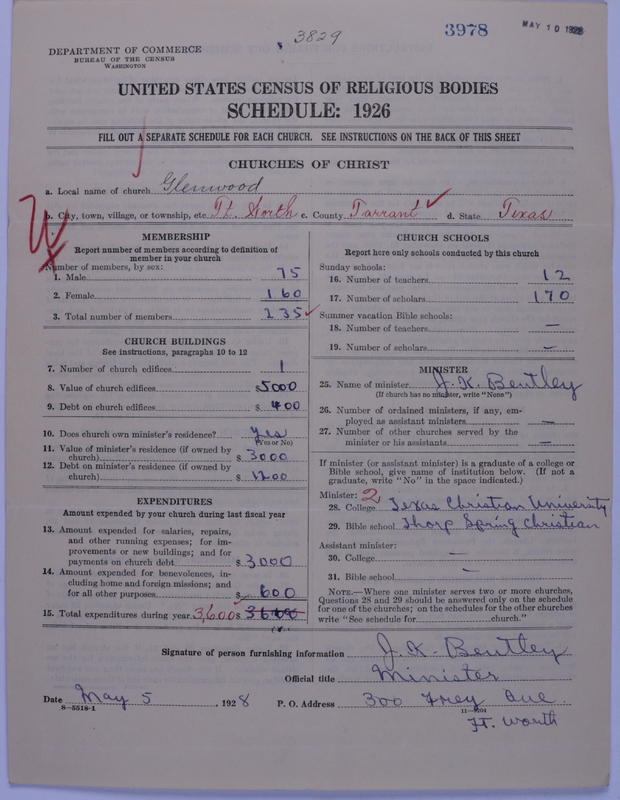 3829
3978
MAY 10 1928
DEPARTMENT OF COMMERCE
BUREAU OF THE CENSUS
WASHINGTON
UNITED STATES CENSUS OF RELIGIOUS BODIES
SCHEDULE: 1926
FILL OUT A SEPARATE SCHEDULE FOR EACH CHURCH. SEE INSTRUCTIONS ON THE BACK OF THIS SHEET
CHURCHES OF CHRIST
a. Local name of church Glenwood
b. City, town, village, or township, etc. Ft. Worth c. County Tarrant d. State Texas
W
x
MEMBERSHIP
Report number of members according to definition of
member in your church
Number of members, by sex:
1. Male 75
2. Female 160
3. Total number of members 235
CHURCH BUILDINGS
See instructions, paragraphs 10 to 12
7. Number of church edifices 1
8. Value of church edifices $5000
9. Debt on church edifices $ 400
10. Does church own minister's residence? Yes
(Yes or No)
11. Value of minister's residence (if owned by
church) $ 3000
12. Debt on minister's residence (if owned by
church) $ 1200
EXPENDITURES
Amount expended by your church during last fiscal year
13. Amount expended for salaries, repairs,
and other running expenses; for im-
provements or new buildings; and for
payments on church debt $ 3000
14. Amount expended for benevolences, in-
cluding home and foreign missions; and
for all other purposes $ 600
15. Total expenditures during year 3,600 $
CHURCH SCHOOLS
Report here only schools conducted by this church
Sunday schools:
16. Number of teachers 12
17. Number of scholars 170
Summer vacation Bible schools:
18. Number of teachers —
19. Number of scholars —
MINISTER
25. Name of minister J. K. Bentley
(If church has no minister, write "None")
26. Number of ordained ministers, if any, em-
ployed as assistant ministers —
27. Number of other churches served by the
minister or his assistants —
If minister (or assistant minister) is a graduate of a college or
Bible school, give name of institution below. (If not a
graduate, write "No" in the space indicated.)
Minister: 2
28. College Texas Christian University
29. Bible school Thorp Spring Christian
Assistant minister:
30. College —
31. Bible school —
NOTE.—Where one minister serves two or more churches,
Questions 28 and 29 should be answered only on the schedule
for one of the churches; on the schedules for the other churches
write "See schedule for church."
Signature of person furnishing information J. K. Bentley
Official title Minister
Date May 5, 1928 P. O. Address 300 Frey Ave.
8-5518-1
11-9204
Ft. Worth